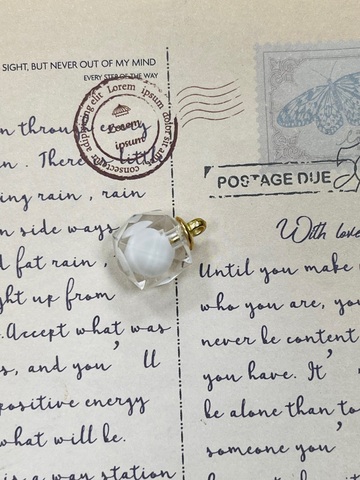 SIGHT, BUT NEVER OUT OF MY MIND
EVERY STEP OF THE WAY
adipiscing elit Lorem ipsum dolor sit amet consectetur
Lorem
ipsum
throu
. There little
ing rain, rain
n side ways
d fat rain,
ght up from
. Accept what was
s, and you' ll
positive energy
what will be.
is a way station
POSTAGE DUE
With love
Until you make
who you are, you
never be content
you have. It'
be alone than to
someone you'